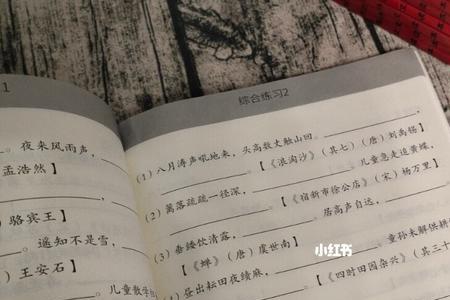 1
。夜来风雨声，
孟浩然】
骆宾王】
。遥知不是雪，
）王安石】
。儿童散学
综合练习2
(1) 八月涛声吼地来，头高数丈触山回。
。【《浪淘沙》（其七）（唐）刘禹锡】
(2) 篱落疏疏一径深，
。儿童急走追黄蝶，
。【《宿新市徐公店》（宋）杨万里】
(3) 垂緌饮清露，
。居高声自远，
【《蝉》（唐）虞世南】
(4) 昼出耘田夜绩麻，
。童孙未解供耕
【《四时田园杂兴》（其三十
小红书